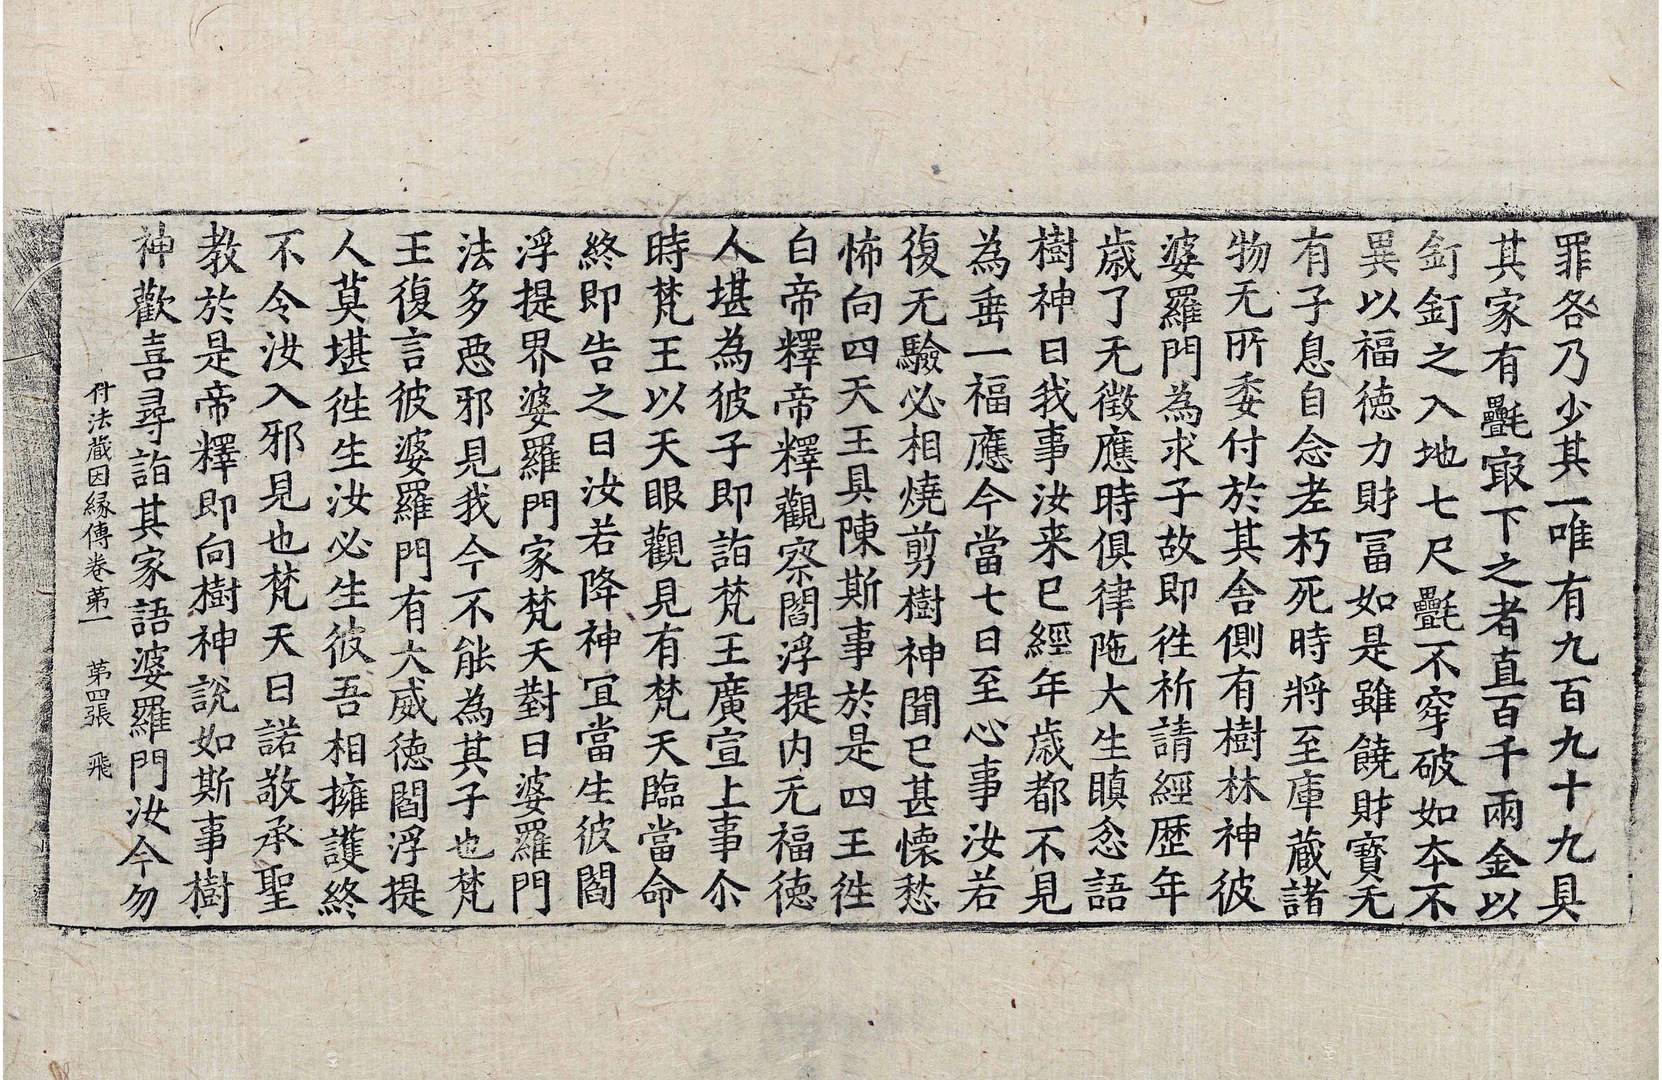 罪各乃少其一唯有九百九十九具
其家有㲲㝡下之者直百千兩金以
釘釘之入地七尺㲲不穿破如夲不
異以福徳力財冨如是雖饒財寶无
有子息自念老朽死時將至庫蔵諸
物无所委付於其舍側有樹林神彼
婆羅門為求子故即徃祈請經歷年
歳了无徵應時俱律陁大生瞋忿語
樹神曰我事汝来已經年歳都不見
為垂一福應今當七日至心事汝若
復无驗必相燒剪樹神聞已甚懷愁
怖向四天王具陳斯事於是四王徃
白帝釋帝釋觀察閻浮提内无福徳
人堪為彼子即詣梵王廣宣上事尒
時梵王以天眼觀見有梵天臨當命
終即告之曰汝若降神冝當生彼閻
浮提界婆羅門家梵天對曰婆羅門
法多惡邪見我今不能為其子也梵
王復言彼婆羅門有大威徳閻浮提
人莫堪徃生汝必生彼吾相擁護終
不令汝入邪見也梵天曰諾敬承聖
教於是帝釋即向樹神說如斯事樹
神歡喜尋詣其家語婆羅門汝今勿
付法藏因縁傳卷苐一　苐四張　飛